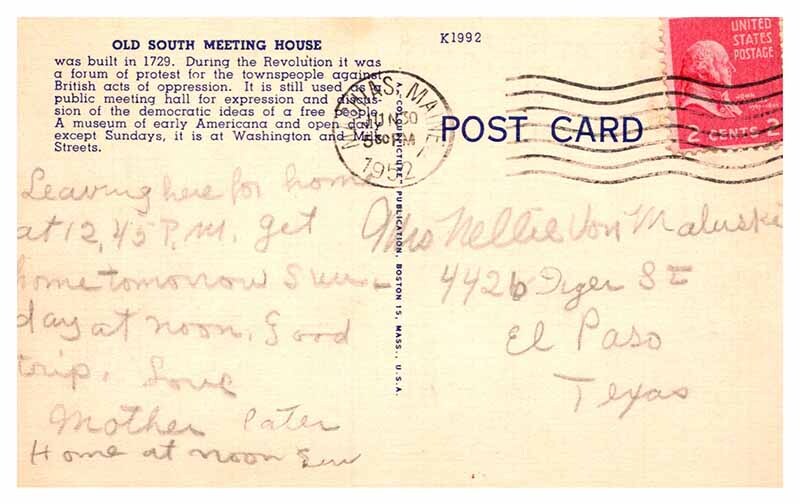 OLD SOUTH MEETING HOUSE
was built in 1729. During the Revolution it was
a forum of protest for the townspeople against
British acts of oppression. It is still used as a
public meeting hall for expression and discus-
sion of the democratic ideas of a free people.
A museum of early Americana and open daily
except Sundays, it is at Washington and Milk
Streets.
K1992
MACHIAS, MAINE
JUN 30
530 PM
1952
UNITED
STATES
POSTAGE
JOHN
2 CENTS 2
POST CARD
PUBLICATION, BOSTON 15, MASS., U.S.A.
Leaving here for home
at 12,45 P.M. get
home tomorrow Sun-
day at noon. Good
trip. Love
Mother Pater
Home at noon Sun
Mrs Nellie Von Maluski
4426 Tiger St
El Paso
Texas